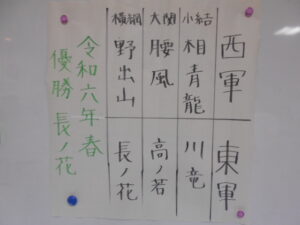 西軍 東軍
小結 相青龍 川竜
大関 腰風 高ノ若
横綱 野出山 長ノ花
令和六年春
優勝 長ノ花